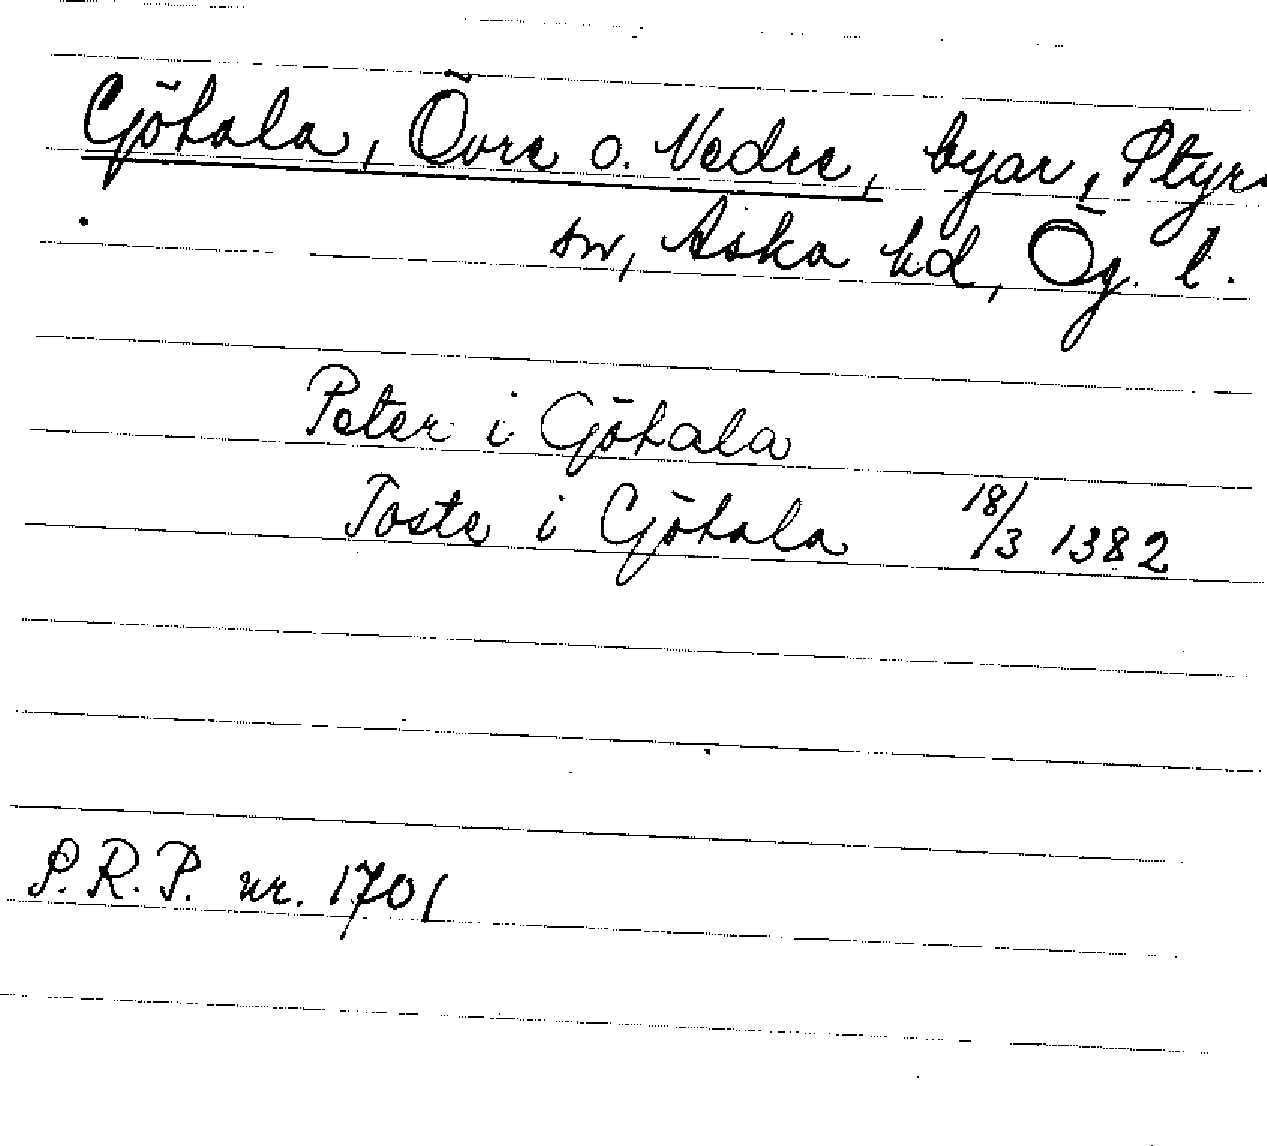 Göhala, Övre o. Nedre, byar, Styra
sn, Aska hd, Ög. l.
Peter i Göhala
Toste i Göhala 18/3 1382
S.R.P. nr. 1701